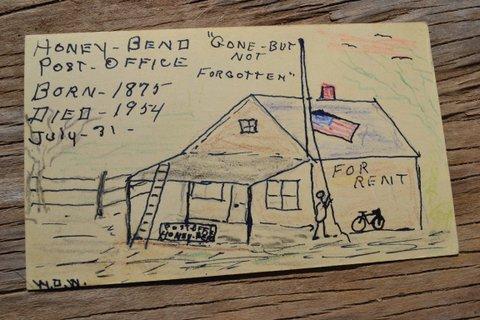 HONEY-BEND
POST-OFFICE
BORN-1875
DIED-1954
July-31-
"GONE-BUT
NOT
FORGOTTEN"
FOR
RENT
HONEY-BEND
W.O.W.